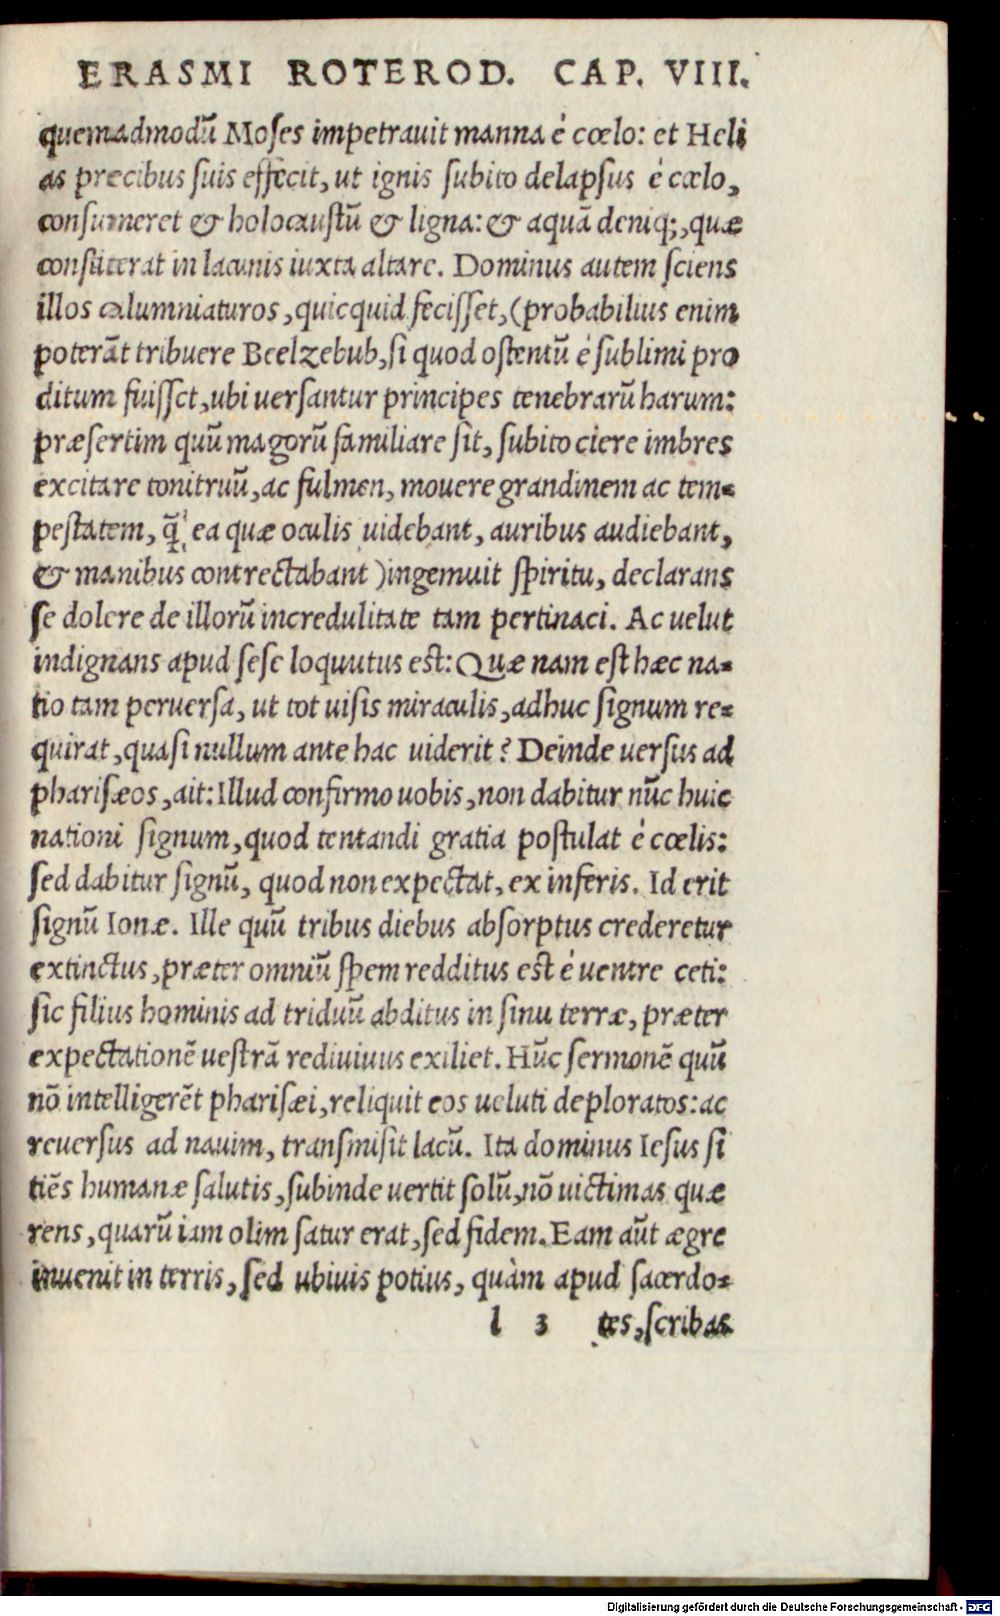 ERASMI ROTEROD. CAP. VIII.
quemadmodū Moſes impetrauit manna è cœlo: et Heli
as precibus ſuis effecit, ut ignis ſubito delapſus è cœlo,
conſumeret & holocauſtū & ligna: & aquā deniq;, quæ
conſtiterat in lacunis iuxta altare. Dominus autem ſciens
illos calumniaturos, quicquid feciſſet, (probabilius enim
poterāt tribuere Beelzebub, ſi quod oſtentū è ſublimi pro
ditum fuiſſet, ubi uerſantur principes tenebrarū harum:
præſertim quū magorū familiare ſit, ſubito ciere imbres
excitare tonitruū, ac fulmen, mouere grandinem ac tem-
peſtatem, q̄ ea quæ oculis uidebant, auribus audiebant,
& manibus contrectabant) ingemuit ſpiritu, declarans
ſe dolere de illorū incredulitate tam pertinaci. Ac uelut
indignans apud ſeſe loquutus eſt: Quæ nam eſt hæc na-
tio tam peruerſa, ut tot uiſis miraculis, adhuc ſignum re-
quirat, quaſi nullum ante hac uiderit? Deinde uerſus ad
phariſæos, ait: Illud confirmo uobis, non dabitur nūc huic
nationi ſignum, quod tentandi gratia poſtulat è cœlis:
ſed dabitur ſignū, quod non expectat, ex inferis. Id erit
ſignū Ionæ. Ille quū tribus diebus abſorptus crederetur
extinctus, præter omniū ſpem redditus eſt è uentre ceti:
ſic filius hominis ad triduū abditus in ſinu terræ, præter
expectationē ueſtrā rediuiuus exiliet. Hūc ſermonē quū
nō intelligerēt phariſæi, reliquit eos ueluti deploratos: ac
reuerſus ad nauim, tranſmiſit lacū. Ita dominus Ieſus ſi
tiēs humanæ ſalutis, ſubinde uertit ſolū, nō uictimas quæ
rens, quarū iam olim ſatur erat, ſed fidem. Eam aūt ægre
inuenit in terris, ſed ubiuis potius, quàm apud ſacerdo-
l 3 tes, ſcribas
Digitalisierung gefördert durch die Deutsche Forschungsgemeinschaft - DFG